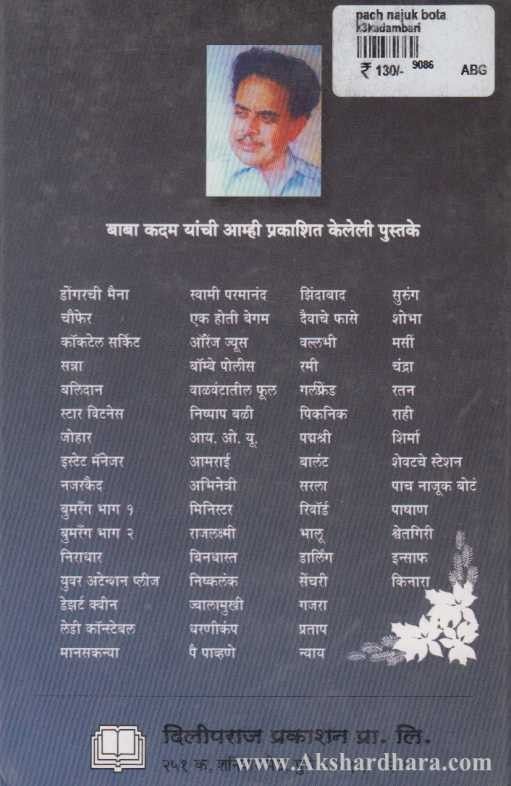 pach najuk bota
k3kadambari
₹ 130/- 9086 ABG
बाबा कदम यांची आम्ही प्रकाशित केलेली पुस्तके
डोंगरची मैना स्वामी परमानंद झिंदाबाद सुरुंग
चौफेर एक होती बेगम दैवाचे फासे शोभा
कॉकटेल सर्किट ऑरेंज ज्यूस वल्लभी मर्सी
सत्रा बॉम्बे पोलीस रमी चंद्रा
बलिदान वाळवंटातील फूल गर्लफ्रेंड रतन
स्टार विटनेस निष्पाप बळी पिकनिक राही
जोहार आय. ओ. यू. पद्मश्री शिर्मा
इस्टेट मॅनेजर आमराई बालंट शेवटचे स्टेशन
नजरकैद अभिनेत्री सरला पाच नाजूक बोटं
बुमरँग भाग १ मिनिस्टर रिवॉर्ड पाषाण
बुमरँग भाग २ राजलक्ष्मी भालू श्वेतगिरी
निराधार बिनधास्त डार्लिंग इन्साफ
युवर अटेन्शन प्लीज निष्कलंक सेंचरी किनारा
डेझर्ट क्वीन ज्वालामुखी गजरा
लेडी कॉन्स्टेबल धरणीकंप प्रताप
मानसकन्या पै पाव्हणे न्याय
दिलीपराज प्रकाशन प्रा. लि.
२५१ क,
www.Akshardhara.com